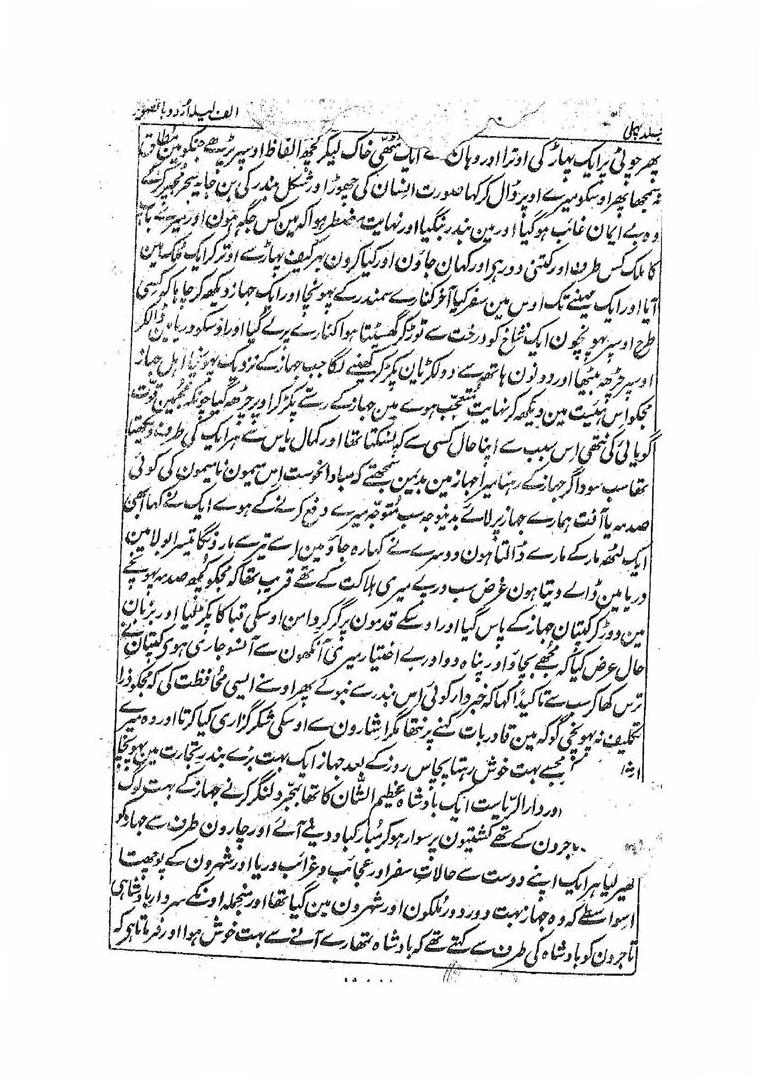 الف لیلہ اردو با تصویر
جلد پہلی
پھر چوٹی پر ایک پہاڑ کی اوترا اور وہان سے ایک مٹھی خاک لیکر کچھ الفاظ اوسپر پڑھے جنکو مین مطلق
نہ سمجھا پھر اوسکو میرے اوپر ڈال کر کہا صورت انسان کی چھوڑ اور شکل بندر کی بن جا یہ سحر مجھپر کر کے
وہ بے ایمان غائب ہوگیا اور مین بندر بنگیا اور نہایت مضطر ہوا کہ مین کس جگہ ہون اور میرے باپ
کا ملک کس طرف اور کتنی دور ہی اور کہان جاؤن اور کیا کرون بہر کیف پہاڑ سے اوتر کر ایک ملک مین
آیا اور ایک مہینے تک اوس مین سفر کیا آخر کنارے سمندر کے پہونچا اور ایک جہاز دیکھ کر چاہا کہ کسی
طرح اوسپر پہونچون ایک شاخ کو درخت سے توڑ کر گھسیٹتا ہوا کنارے پر لے گیا اور اوسکو دریا مین ڈالکر
اوسپر چڑھ بیٹھا اور دونون ہاتھ سے دو لکڑیان پکڑ کر کھینے لگا جب جہاز کے نزدیک پہونچا اہل جہاز
مجکو اس ہئیت مین دیکھ کر نہایت متعجب ہوے مین جہاز کے رسے پکڑ کر اوپر چڑھ گیا چونکہ مجھمین قوت
گویائی کی نتھی اس سبب سے اپنا حال کسی سے کہ نسکتا تھا اور کمال یاس سے ہر ایک کی طرف دیکھتا
تھا سب سوداگر جہاز کے رہنا میرا جہاز مین بدیمن سمجھتے کہ مبادا نحوست اس میمون نامیمون کی کوئی
صدمہ یا آفت ہمارے جہاز پر لائے بدینوجہ سب متوجہ میرے دفع کرنے کے ہوے ایک نے کہا ابھی
ایک لٹھ مار کے مارے ڈالتا ہون دوسرے نے کہا رہ جاؤ مین اسے تیر سے مار دونگا تیسرا بولا مین
دریا مین ڈالے دیتا ہون غرض سب درپے میری ہلاکت کے تھے قریب تھا کہ مجکو کچھ صدمہ پہونچے
مین دوڑ کر کپتان جہاز کے پاس گیا اور اوسکے قدمون پر گر کر دامن اوسکی قبا کا پکڑ لیا اور بزبان
حال عرض کیا کہ مجھے بچاؤ اور پناہ دو اور بے اختیار میری آنکھون سے آنسو جاری ہوی کپتان نے
ترس کھا کر سب سے تاکیداً کہا کہ خبردار کوئی اس بندر سے نبولے پھر اوسنے ایسی محافظت کی کہ مجکو ذرا
تکلیف نہ پہونچی گو کہ مین قادر بات کہنے پر نتھا مگر اشارون سے اوسکی شکر گزاری کیا کرتا اور وہ میرے
مجھسے بہت خوش رہتا پچاس روز کے بعد جہاز ایک بہت بڑے بندر تجارت مین پہونچا
اور دار الریاست ایک بادشاہ عظیم الشان کا تھا بمجرد لنگر کرنے جہاز کے بہت لوگ
تاجرون کے تھے کشتیون پر سوار ہوکر مبارکباد دینے آئے اور چارون طرف سے جہاز کو
گھیر لیا ہر ایک اپنے دوست سے حالات سفر اور عجائب و غرائب دریا اور شہرون کے پوچھتا
اسواسطے کہ وہ جہاز بہت دور دور ملکون اور شہرون مین گیا تھا اور منجملہ اونکے سردار بادشاہی
تاجرون کو بادشاہ کی طرف سے کہتے تھے کہ بادشاہ تمھارے آنے سے بہت خوش ہوا اور فرماتا ہی کہ